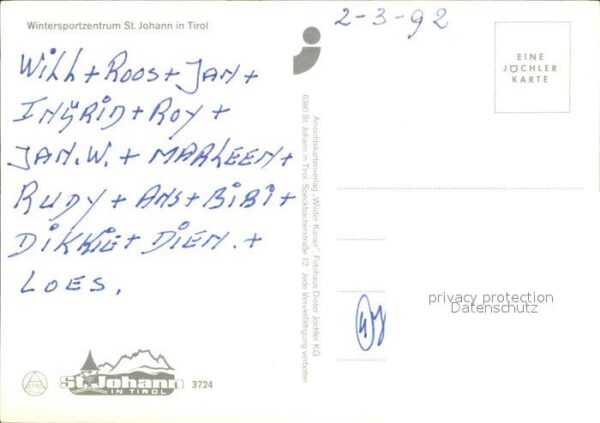 Wintersportzentrum St. Johann in Tirol
2-3-92
WiLL + ROOS + JAN +
INGRID + ROY +
JAN.W. + MARLEEN +
RUDY + ANS + BiBi +
DiKKiE + DIEN. +
LOES.
EINE
JÖCHLER
KARTE
Ansichtskartenverlag „Wilder Kaiser“ Fotohaus Dieter Jöchler KG
6380 St. Johann in Tirol, Speckbacherstraße 12. Jede Vervielfältigung verboten
privacy protection
Datenschutz
St. Johann
IN TIROL
3724